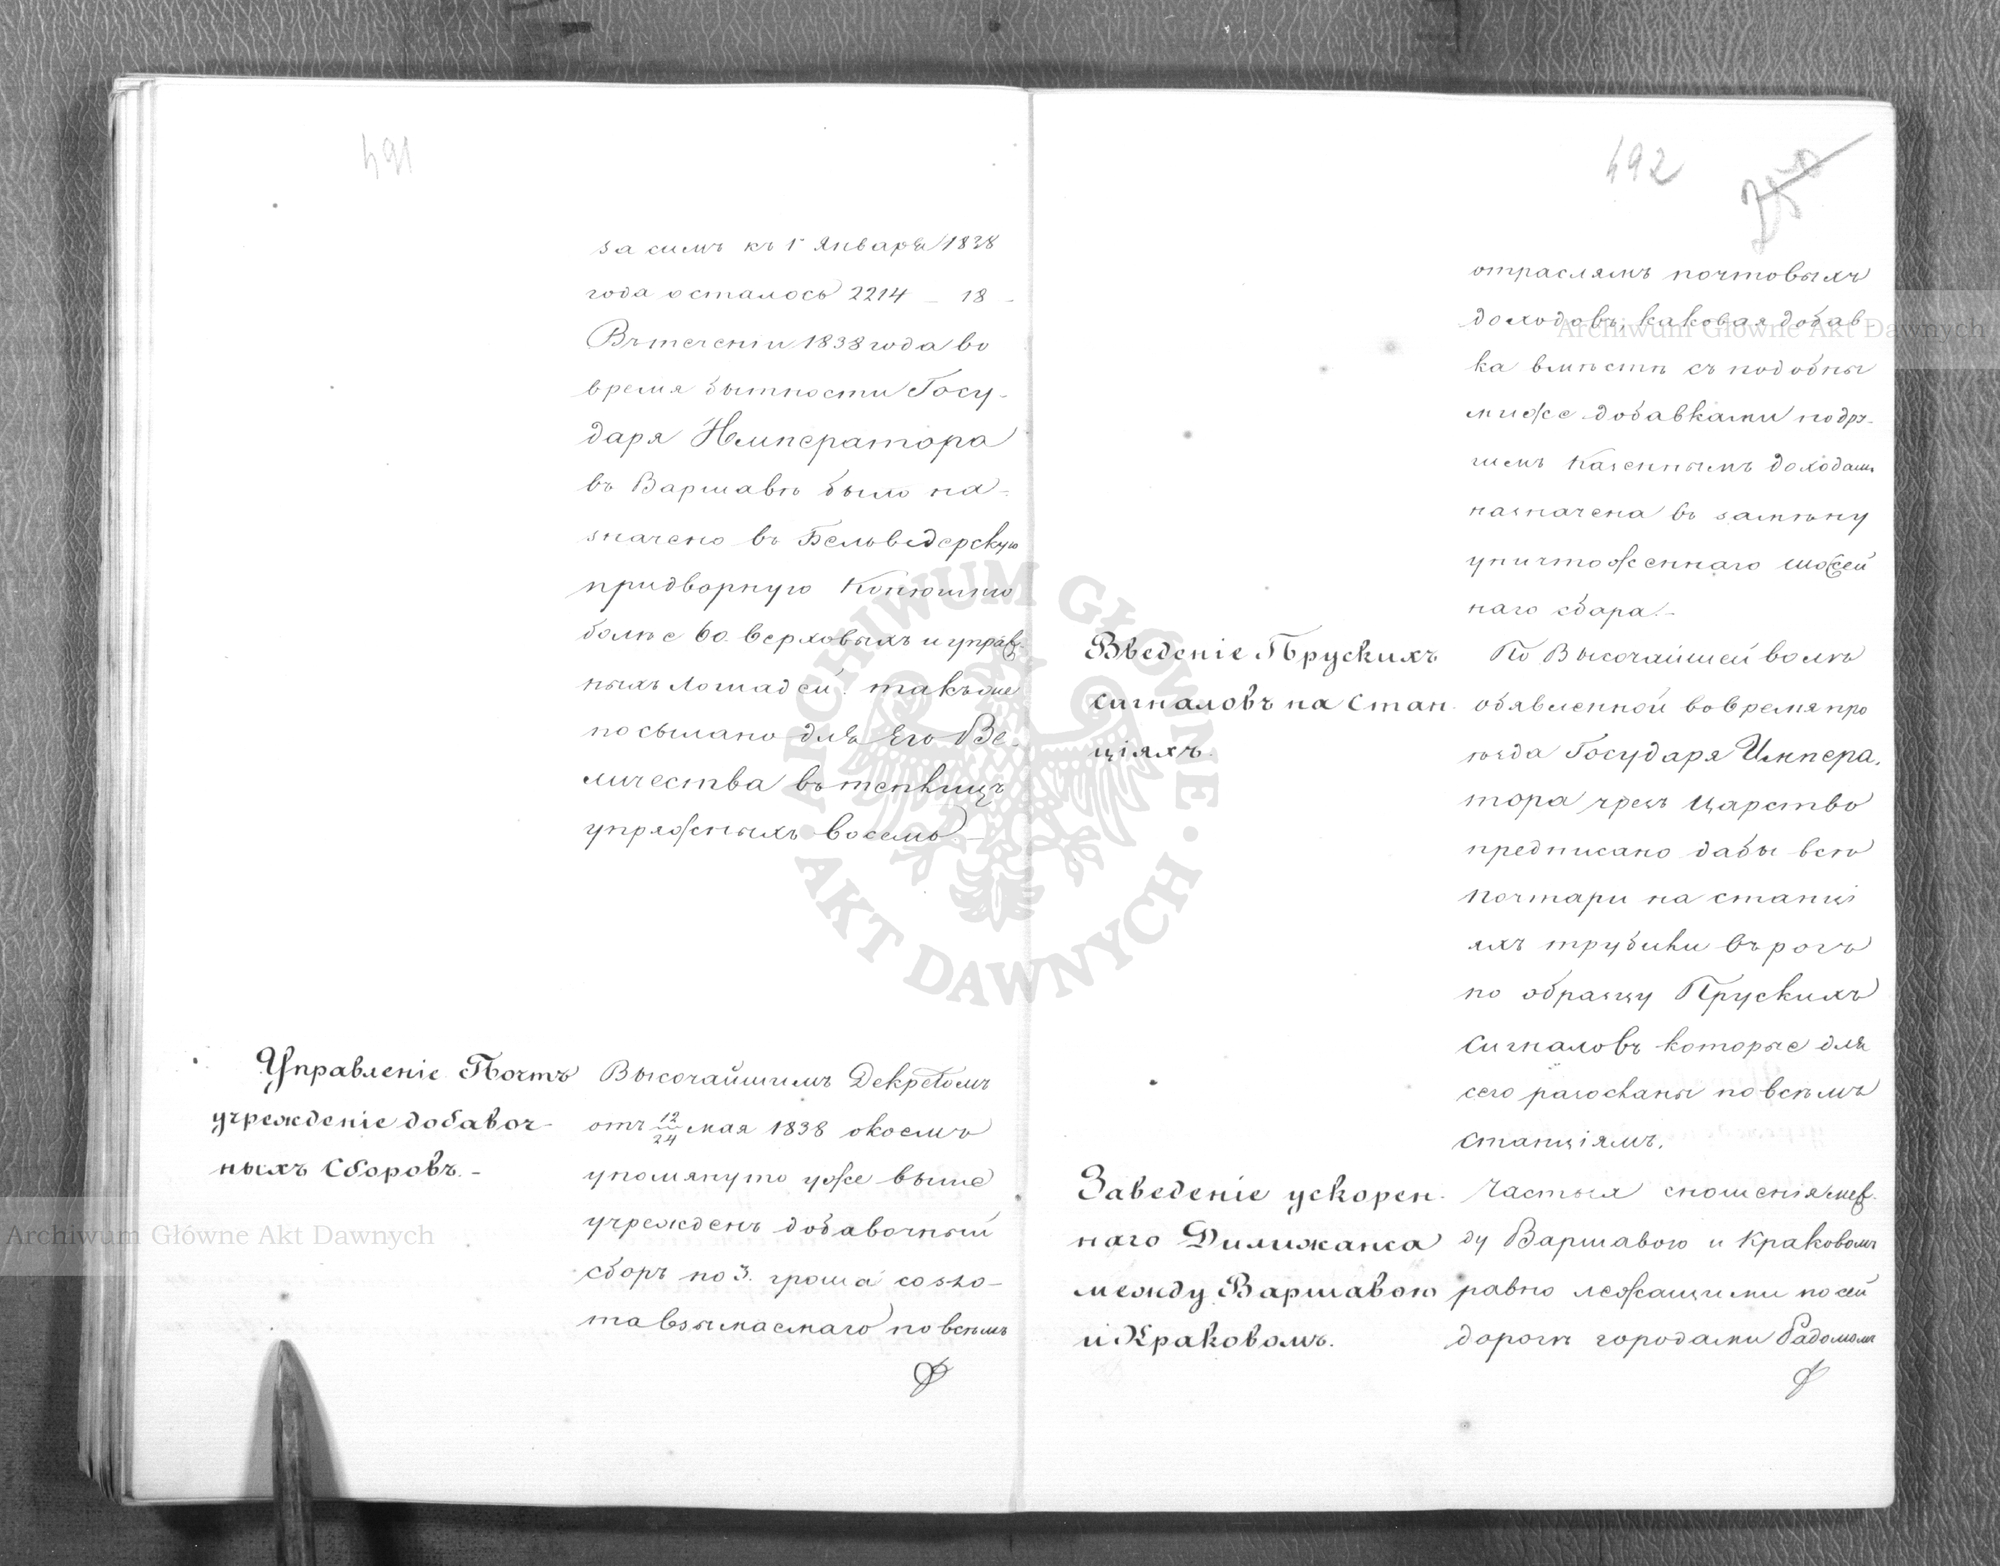 491
за симъ къ 1 Января 1838
года осталось 2214 – 18 –
Въ теченіи 1838 года во
время бытности Госу-
даря Императора
въ Варшавѣ было на-
значено въ Бельведерскую
придворную Конюшню
болѣе 60 верховыхъ и упряж-
ныхъ лошадей. также
посылано для Его Ве-
личества въ
упряжныхъ восемь –
Управленіе Почтъ
учрежденіе добавоч-
ныхъ Сборовъ. –
Высочайшимъ Декретомъ
отъ 12/24 мая 1838 о коемъ
упомянуто уже выше
учрежденъ добавочный
сборъ по 3. гроша со зло-
та взымаемаго по всѣмъ
492
250
отраслямъ почтовыхъ
доходовъ, каковая добав
ка вмѣстѣ съ подобны
миже добавками по дру-
гимъ Казеннымъ доходамъ
назначена въ замѣну
уничтоженнаго шоссей
наго сбора. –
Вѣеденіе Прускихъ
сигналовъ на Стан-
ціяхъ.
По Высочайшей волѣ
объявленной во время про
ѣзда Государя Импера-
тора чрезъ Царство
предписано дабы всѣ
почтари на станці
яхъ трубили въ рогъ
по образцу Прускихъ
сигналовъ которые для
сего разосланы по всѣмъ
станціямъ.
Заведеніе ускорен-
наго Дилижанса
между Варшавою
и Краковомъ.
Частыя сношенія меж-
ду Варшавою и Краковомъ
равно лежащими по сей
дорогѣ городами Радомомъ
Archiwum Główne Akt Dawnych
Archiwum Główne Akt Dawnych
ARCHIWUM GŁÓWNE AKT DAWNYCH